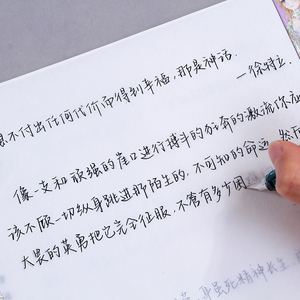 想不付出任何代价而得到幸福,那是神话.
—徐特立.
像一支和顽强的崖口进行搏斗的狂奔的激流你应
该不顾一切纵身跳进那陌生的,不可知的命运,然
大畏的英勇把它完全征服,不管有多少困
身虽死精神长生